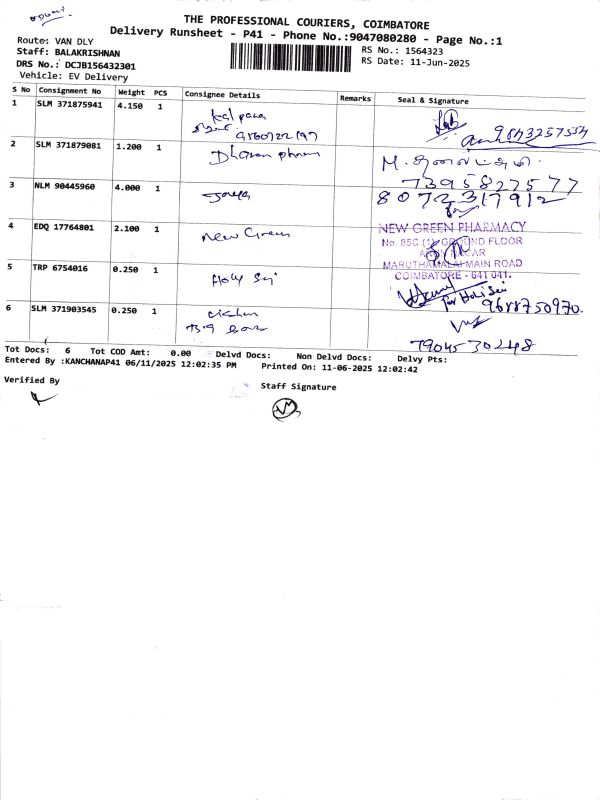 THE PROFESSIONAL COURIERS, COIMBATORE
Delivery Runsheet - P41 - Phone No.:9047080280 - Page No.:1
Route: VAN DLY
RS No.: 1564323
Staff: BALAKRISHNAN
RS Date: 11-Jun-2025
DRS No.: DCJB156432301
Vehicle: EV Delivery
S No Consignment No Weight PCS Consignee Details Remarks Seal & Signature
1 SLM 371875941 4.150 1 Kalpana
9843257554
2 SLM 371879081 1.200 1
7395827577
3 NLM 90445960 4.000 1 Jaya 8072317912
4 EDQ 17764801 2.100 1 New Green NEW GREEN PHARMACY
No. 85C (1) GROUND FLOOR
MARUTHAMALAI MAIN ROAD
COIMBATORE - 641 041.
5 TRP 6754016 0.250 1 Holy Sai
for Holi Sai
9688750970.
6 SLM 371903545 0.250 1
7904530248
Tot Docs: 6 Tot COD Amt: 0.00 Delvd Docs: Non Delvd Docs: Delvy Pts:
Entered By :KANCHANAP41 06/11/2025 12:02:35 PM Printed On: 11-06-2025 12:02:42
Verified By
Staff Signature